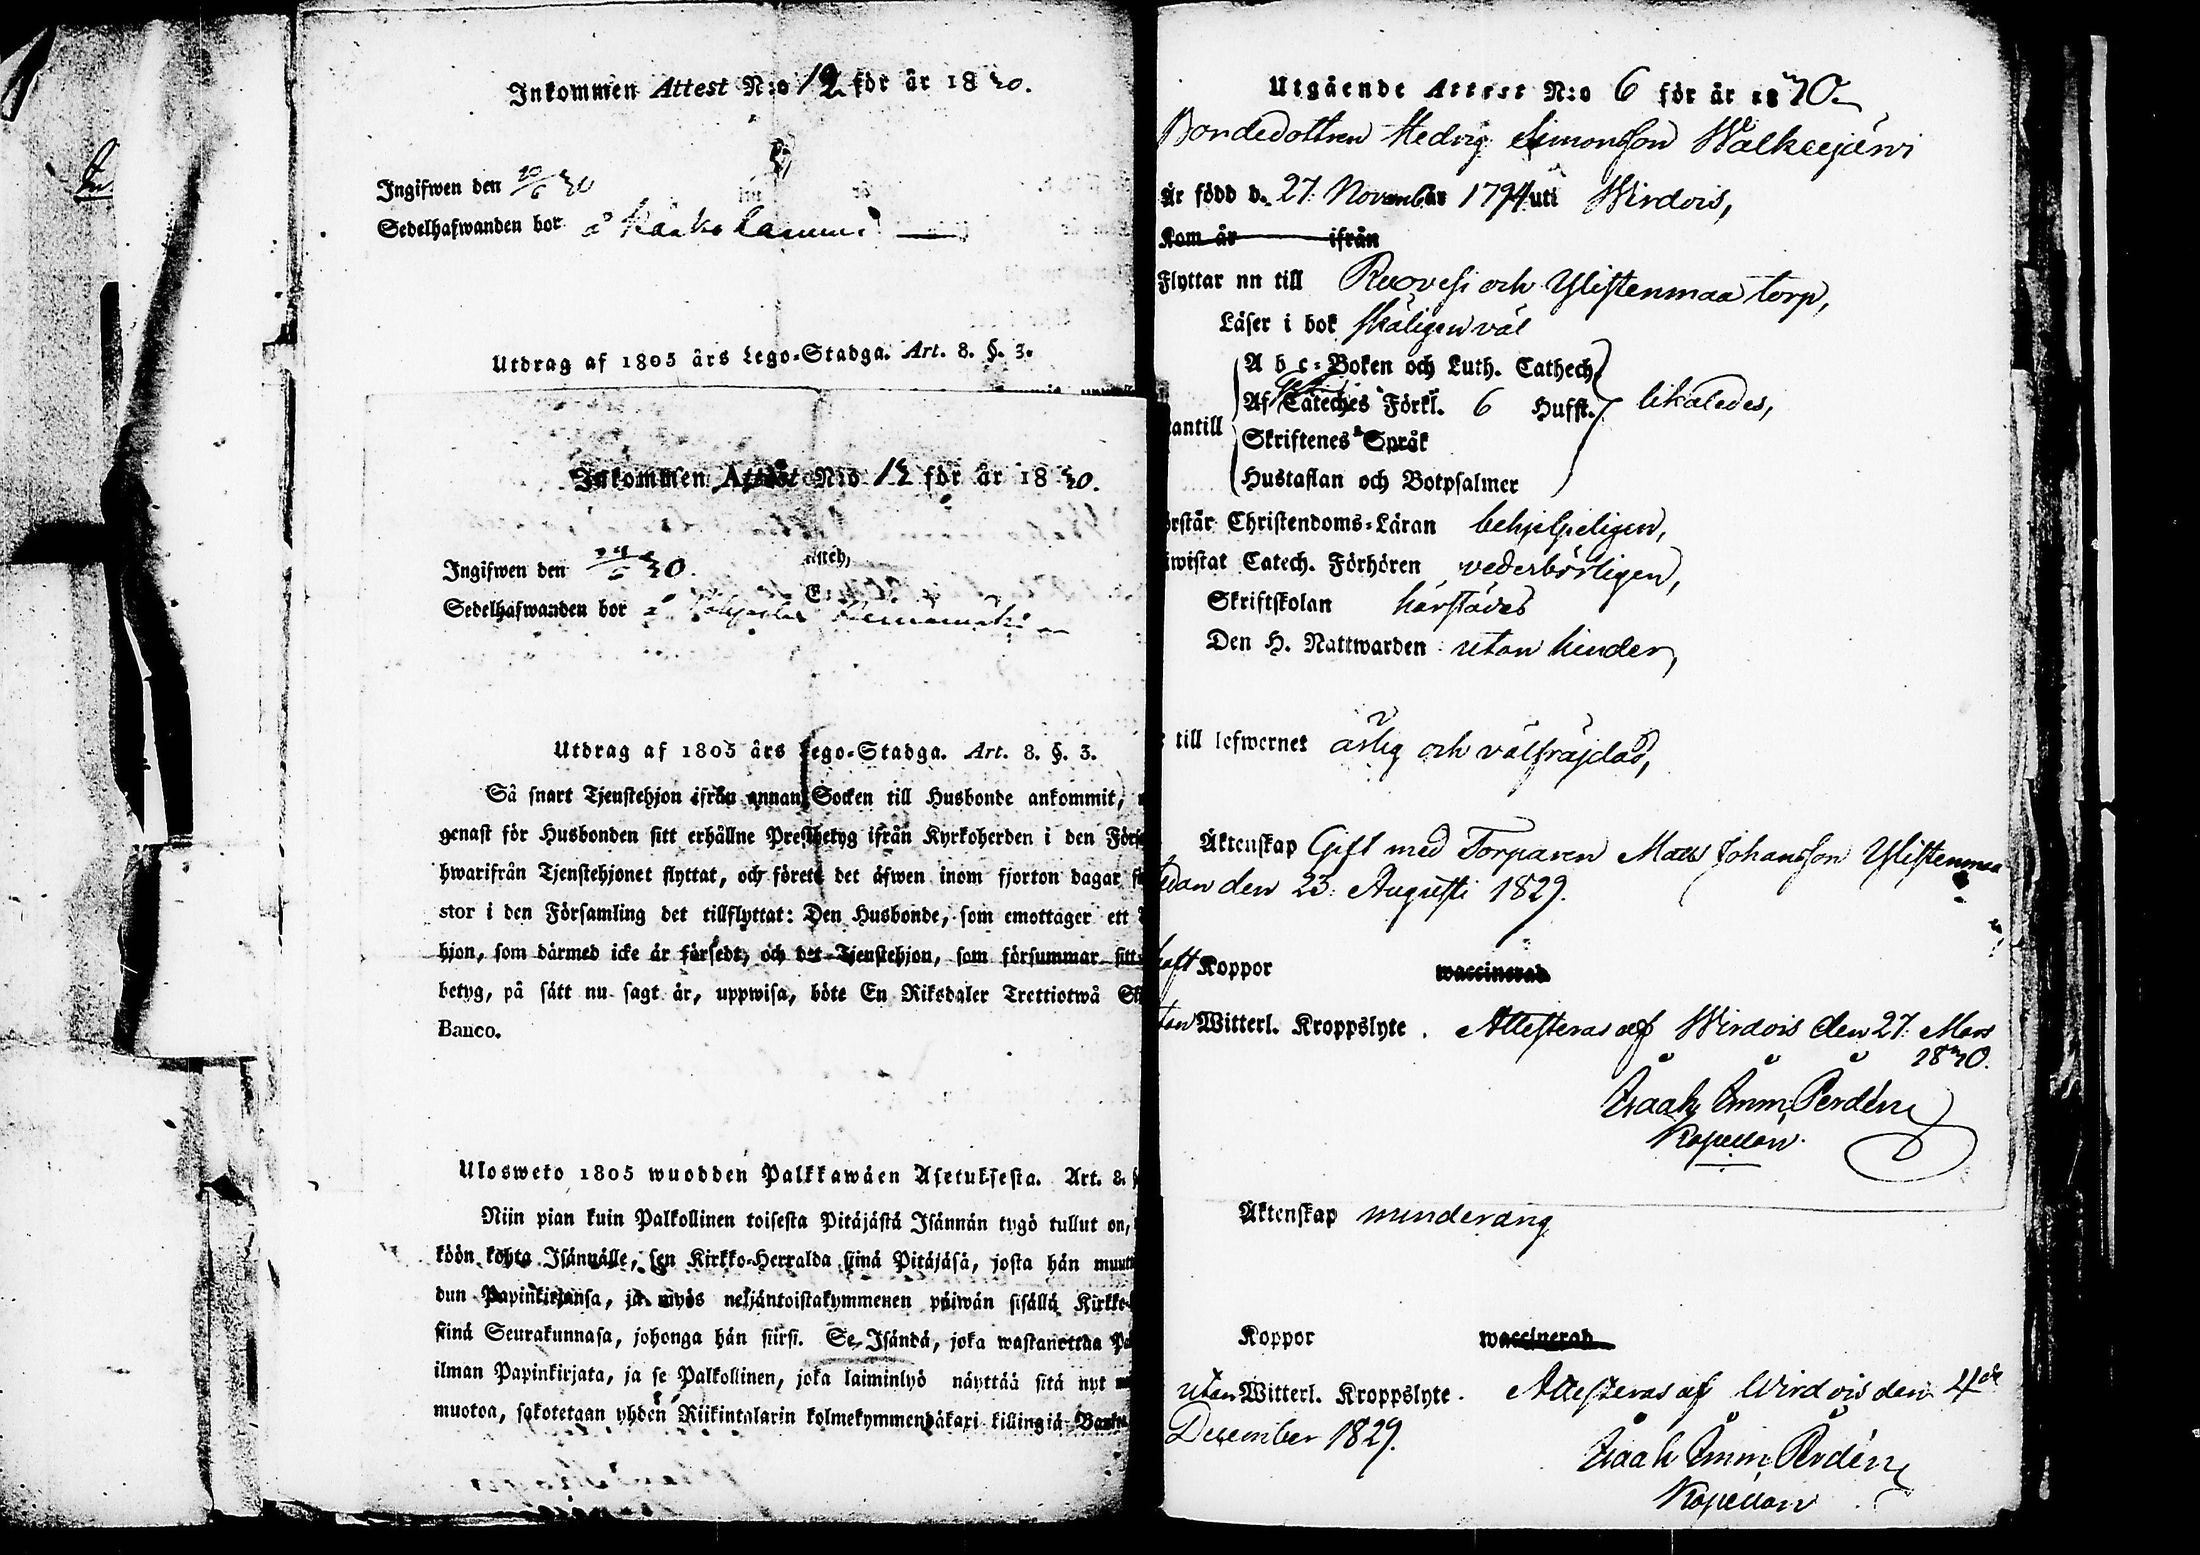 Inkommen Attest N:o 12 för år 1830.
Ingifwen den
Sedelhafwanden bor å
Utdrag af 1805 års Lego-Stadga. Art. 8. §. 3.
Inkommen Attest N:o 12 för år 1830.
Ingifwen den
Sedelhafwanden bor å
Utdrag af 1805 års Lego-Stadga. Art. 8. §. 3.
Så snart Tjenstehjon ifrån annan Socken till Husbonde ankommit,
genast för Husbonden sitt erhållne Prestbetyg ifrån Kyrkoherden i den
hwarifrån Tjenstehjonet flyttat, och förete det äfwen inom fjorton dagar
stor i den Församling det tillflyttat: Den Husbonde, som emottager ett
hjon, som därmed icke är försedt, och det Tjenstehjon, som försummar sitt
betyg, på sätt nu sagt är, uppwisa, böte En Riksdaler Trettiotwå
Banco.
Ulosweto 1805 wuodden Palkkawäen Asetuksesta. Art. 8.
Niin pian kuin Palkollinen toisesta Pitäjästä Isännän tygö tullut on,
köön kohta Isännälle, sen Kirkko-Herralda siinä Pitäjäsä, josta hän
dun Papinkirjansa, ja myös neljäntoistakymmenen päiwän sisällä
siinä Seurakunnasa, johonga hän siirsi. Se Isändä, joka wastanottaa
ilman Papinkirjata, ja se Palkollinen, joka laiminlyö näyttää sitä nyt
muotoa, sakotetaan yhden Riikintalarin kolmekymmendäkaxi killingiä
Utgående Attest N:o 6 för år 1830
Bondedottren Hedvig Simonsson Walkeejärvi
Är född d. 27. November 1794 uti Wirdois,
Kom år ifrån
Flyttar nu till Ruovesi och Ylistenmaa torp,
Läser i bok skäligen väl
A b c-Boken och Luth. Cathech.
Af Cateches Förkl. 6 Hufst. likaledes,
antill
Skriftenes Språk
Hustaflan och Botpsalmer
Christendoms-Läran behjelpeligen,
Catech. Förhören vederbörligen,
Skriftskolan härstädes
Den H. Nattwarden utan hinder,
till lefwernet ärlig och välfräjdad,
Äktenskap Gift med Torparen Matts Johansson Ylistenmaa
den 23. Augusti 1829.
haft Koppor waccinerad
utan Witterl. Kroppslyte. Attesteras af Wirdois den 27. Mars
1830.
Isaak Imm. Perdén
Kapellan.
Äktenskap minderårig
Koppor waccinerad
utan Witterl. Kroppslyte. Attesteras af Wirdois den 4de
December 1829.
Isaak Imm. Perdén
Kapellan